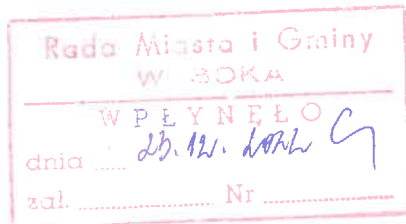 Rada Miasta i Gminy
WYSOKA
WPŁYNĘŁO
dnia ..... 23.12.2022
zał. .................... Nr ....................